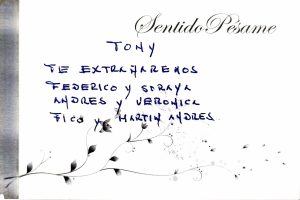 Sentido Pésame
TONY
TE EXTRAÑAREMOS
FEDERICO y SORAYA
ANDRES y VERONICA
FICO y MARTIN ANDRES